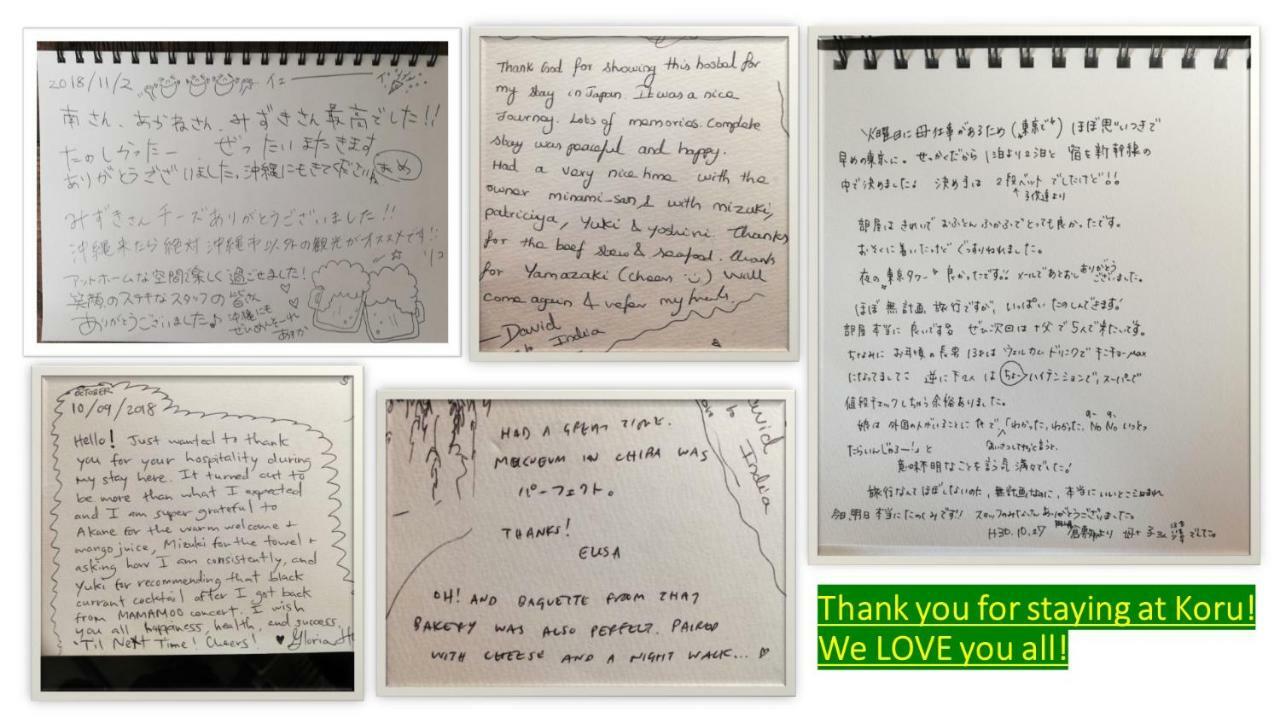 2018/11/2
南さん、あかねさん、みずきさん最高でした!!
たのしかったー ぜったいまたきます
ありがとうございました。沖縄にもきてください。
みずきさんチーズありがとうございました!!
沖縄来たら絶対沖縄市以外の観光がオススメです!!
アットホームな空間で楽しく過ごせました!
笑顔のステキなスタッフの皆さん
ありがとうございました♪
沖縄にも
ぜひめんそーれ
Thank God for showing this hostel for
my stay in Japan. It was a nice
Journey. Lots of memories. Complete
stay was peaceful and happy.
Had a very nice time with the
owner minami-san & with mizuki,
patriciya, Yuki & yoshini. Thanks
for the beef stew & seafood. thank
for Yamazaki (cheers
come again & refer my
David
India
火曜日に母仕事があるため(東京で) ほぼ思いつきで
早めの東京に。せっかくだから1泊より2泊と 宿を新幹線の
中で決めました。決め手は 2段ベットでしたけど!!
子供達より
部屋はきれいで おふとんふかふかでとっても良かったです。
おそくに着いたけど ぐっすりねれました。
夜の東京タワー 良かったです。
ありがとう
ございました。
ほぼ無計画旅行ですが、いっぱいたのしんできます!
部屋本当に良いです
次回は +父で5人で来たいです。
ちなみに お年頃の長男 13才は ウェルカムドリンクで キンチョーMAX
になってまして 逆に下2人は ちょーハイテンションで、スーパーで
値段チェックしちゃう余裕ありました。
娘は 外国の人がいることに 「わかった、わかった、No No いっとっ
たらいんじゃろー!」と
意味不明なことを言う気満々でした!
旅行なんてほぼしないので、無計画なのに、本当にいいとこ
今日、明日 本当にたのしみです! スタッフのみなさんありがとうございました。
H30.10.27
OCTOBER
10/09/2018
Hello! Just wanted to thank
you for your hospitality during
my stay here. It turned out to
be more than what I expected
and I am super grateful to
Akane for the warm welcome +
mango juice, Mizuki for the towel +
asking how I am consistently, and
Yuki for recommending that black
currant cocktail after I got back
from MAMAMOO concert. I wish
you all happiness, health, and success.
'Til Next Time! Cheers! ♥ Gloria
HAD A GREAT TIME.
IN CHIBA WAS
パーフェクト。
THANKS!
ELISA
OH! AND BAGUETTE FROM THAT
BAKERY WAS ALSO PERFECT. PAIRED
WITH CHEESE AND A NIGHT WALK... ♡
David
India
Thank you for staying at Koru!
We LOVE you all!